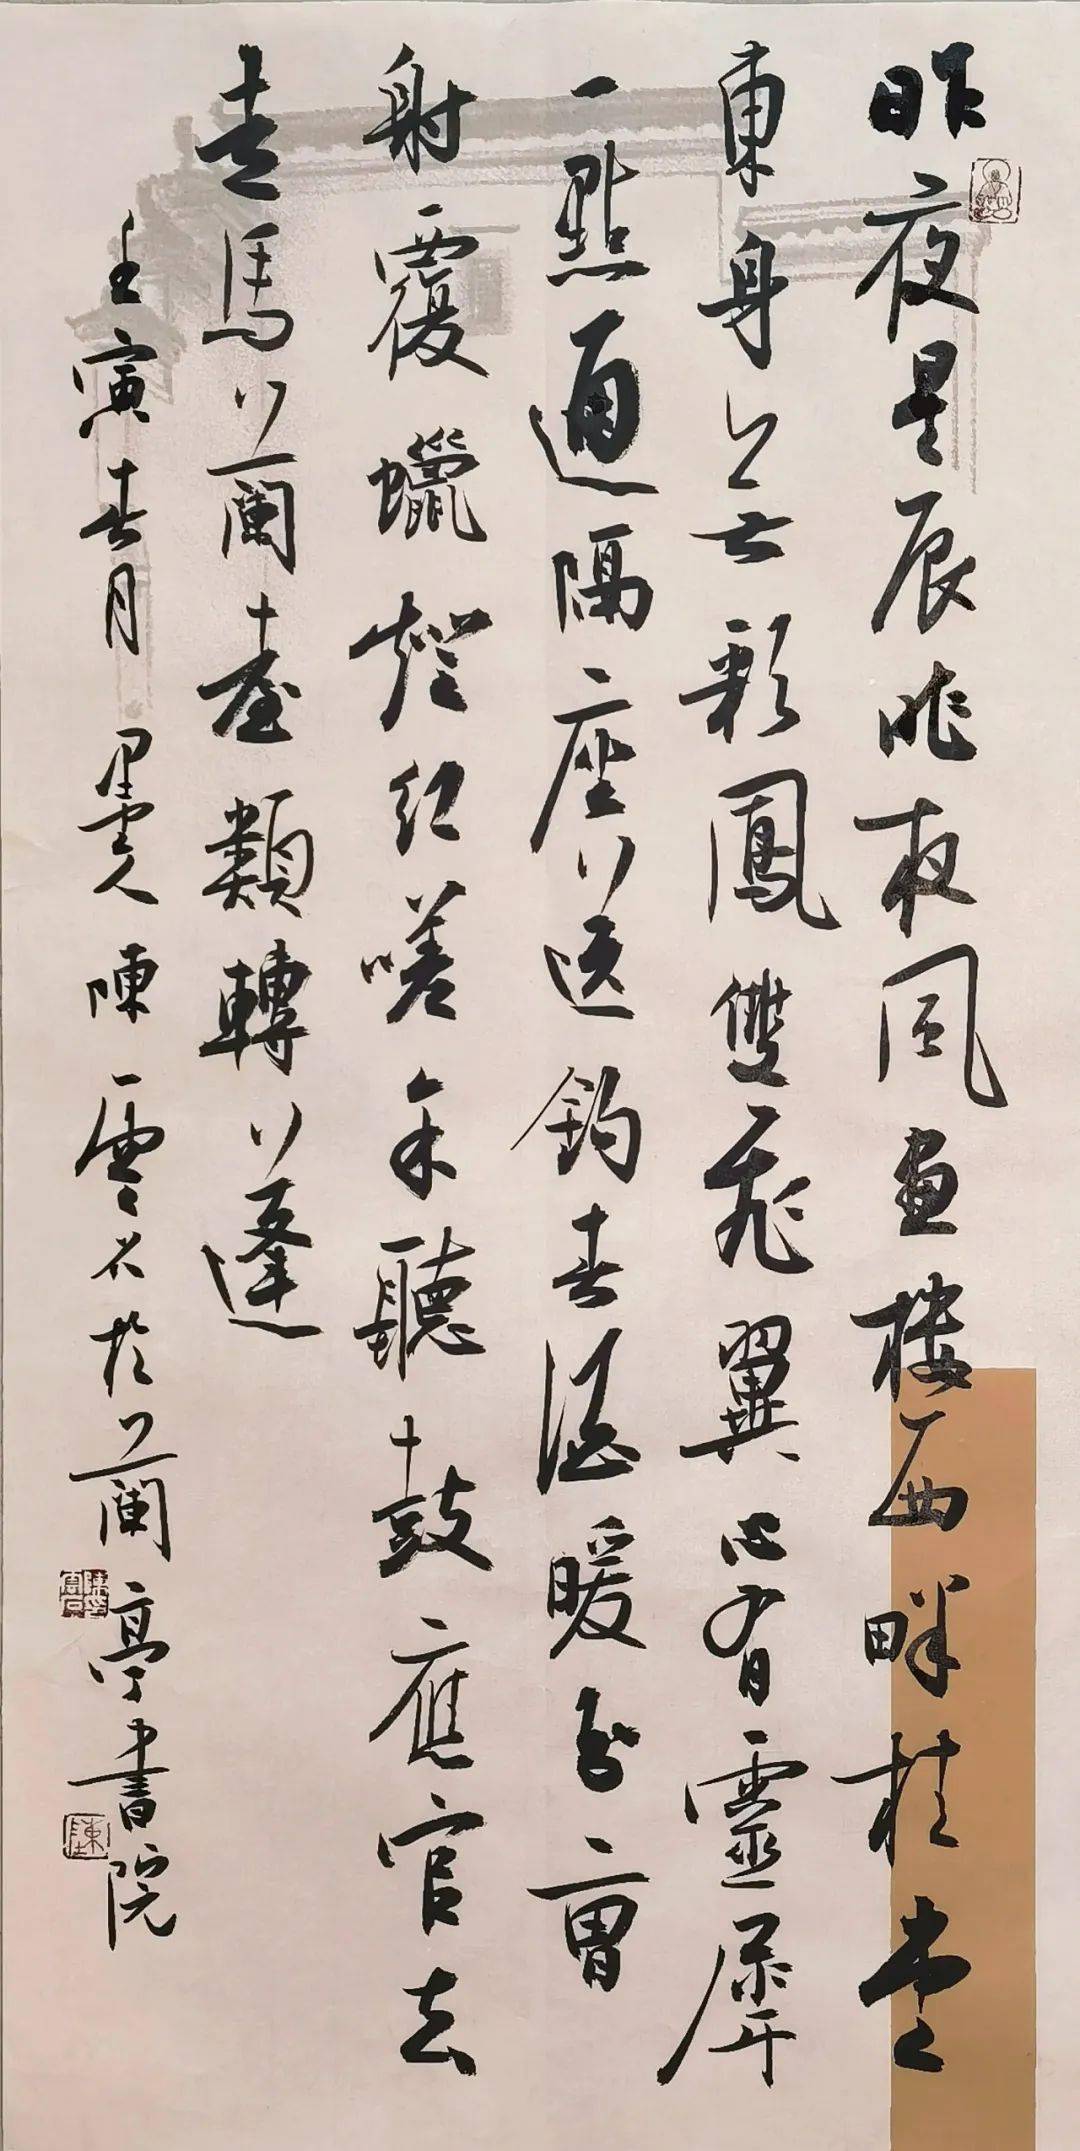 昨夜星辰昨夜風畫樓西畔桂堂
東身無彩鳳雙飛翼心有靈犀
一點通隔座送鈎春酒暖分曹
射覆蠟燈紅嗟余聽鼓應官去
走馬蘭臺類轉蓬
壬寅春月陳於蘭亭書院